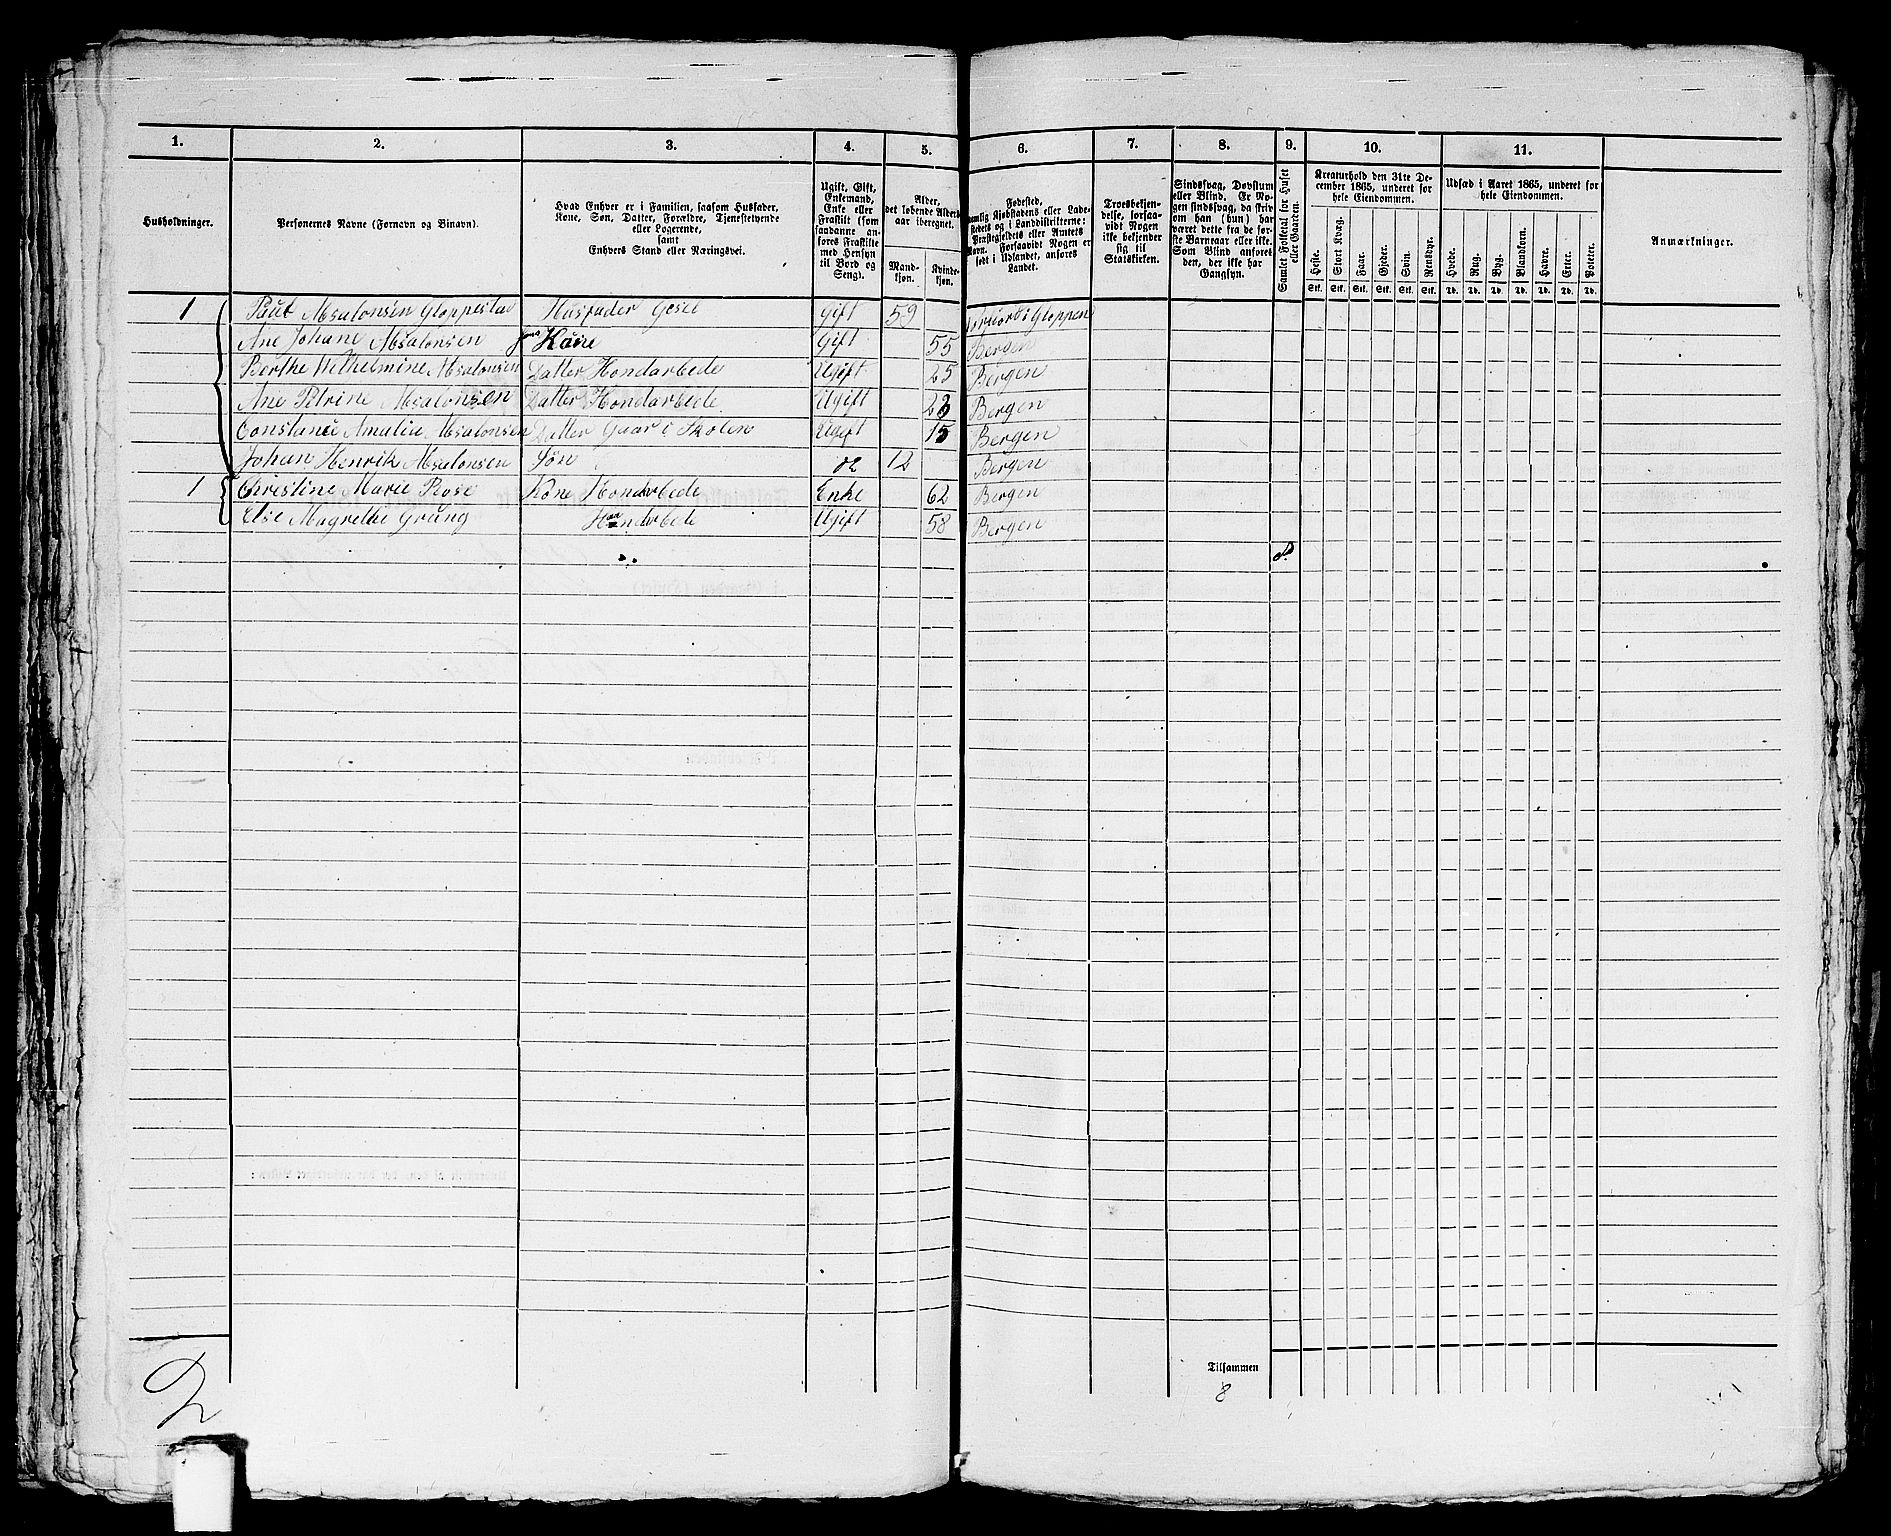 1. 2. 3. 4. 5. 6. 7. 8. 9. 10. 11.
Husholdninger.
Personernes Navne (Fornavn og Binavn).
Hvad Enhver er i Familien, saasom Husfader,
Kone, Søn, Datter, Forældre, Tjenestetyende
eller Logerende,
samt
Enhvers Stand eller Næringsvei.
Ugift, Gift,
Enkemand,
Enke eller
Fraskilt (som
saadanne an-
føres Fraskilte
med Hensyn
til Bord og
Seng).
Alder,
det løbende Alders-
aar iberegnet.
Mand-
kjøn.
Kvinde-
kjøn.
Fødested,
nemlig Kjøbstadens eller Lade-
stedets og i Landdistrikterne:
Præstegjeldets eller Amtets
Navn.
Forsaavidt Nogen er
født i Udlandet, anføres
Landet.
Troesbekjen-
delse, forsaa-
vidt Nogen
ikke bekjender
sig til
Statskirken.
Sindssvag, Døvstum
eller Blind. Er No-
gen sindssvag, da skriv
om han (hun) har
været dette fra de før-
ste Barneaar eller ikke.
Som Blind anføres
den, der ikke har
Gangsyn.
Samlet Folketal for Huset
eller Gaarden.
Kreaturhold den 31te De-
cember 1865, underet for
hele Eiendommen.
Heste. Stort Kvæg. Faar. Gjeder. Svin. Rensdyr.
Stk. Stk. Stk. Stk. Stk. Stk.
Udsæd i Aaret 1865, underet for
hele Eiendommen.
Hvede. Rug. Byg. Blandkorn. Havre. Erter. Poteter.
Td. Td. Td. Td. Td. Td. Td.
Anmærkninger.
1 Paul Absalonsen Gloppestad Husfader Gesel Gift 59 Gloppen
Ane Johane Absalonsen Kone Gift 55 Bergen
Berthe Wilhelmine Absalonsen Datter Hondarbede Ugift 25 Bergen
Ane Petrine Absalonsen Datter Hondarbede Ugift 23 Bergen
Constance Amalie Absalonsen Datter Gaar i Skolen Ugift 15 Bergen
Johan Henrik Absalonsen Søn 12 Bergen
1 Christine Marie Rose Kone Hondarbede Enke 62 Bergen
Else Magrethe Grung Handarbede Ugift 58 Bergen
Tilsammen
8
2